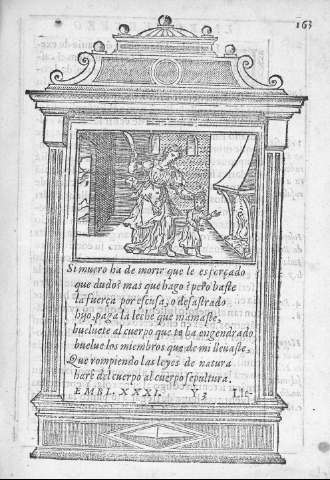 163
Si muero ha de morir que le esforçado
que dudo? mas que hago? pero baste
la fuerça por escusa, o desastrado
hijo, paga la leche que mamaste,
bueluete al cuerpo que te ha engendrado
buelue los miembros que de mi lleuaste,
Que rompiendo las leyes de natura
harè del cuerpo al cuerpo sepultura.
EMBL. XXXI. Y 3 Lle-